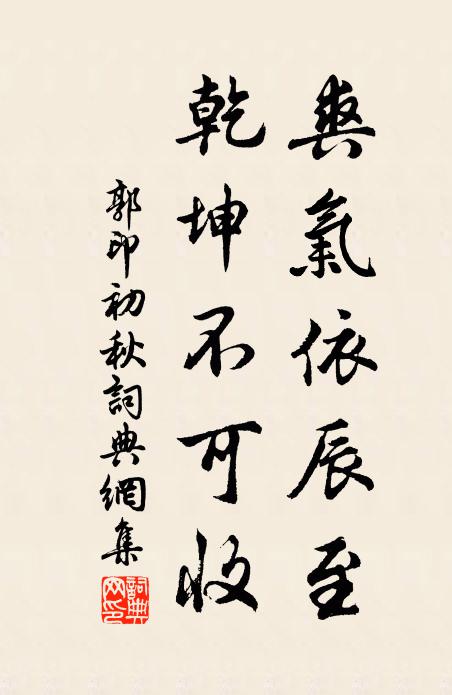 爽氣依辰至
乾坤不可收
郭印初秋詞典網集
詞典網印